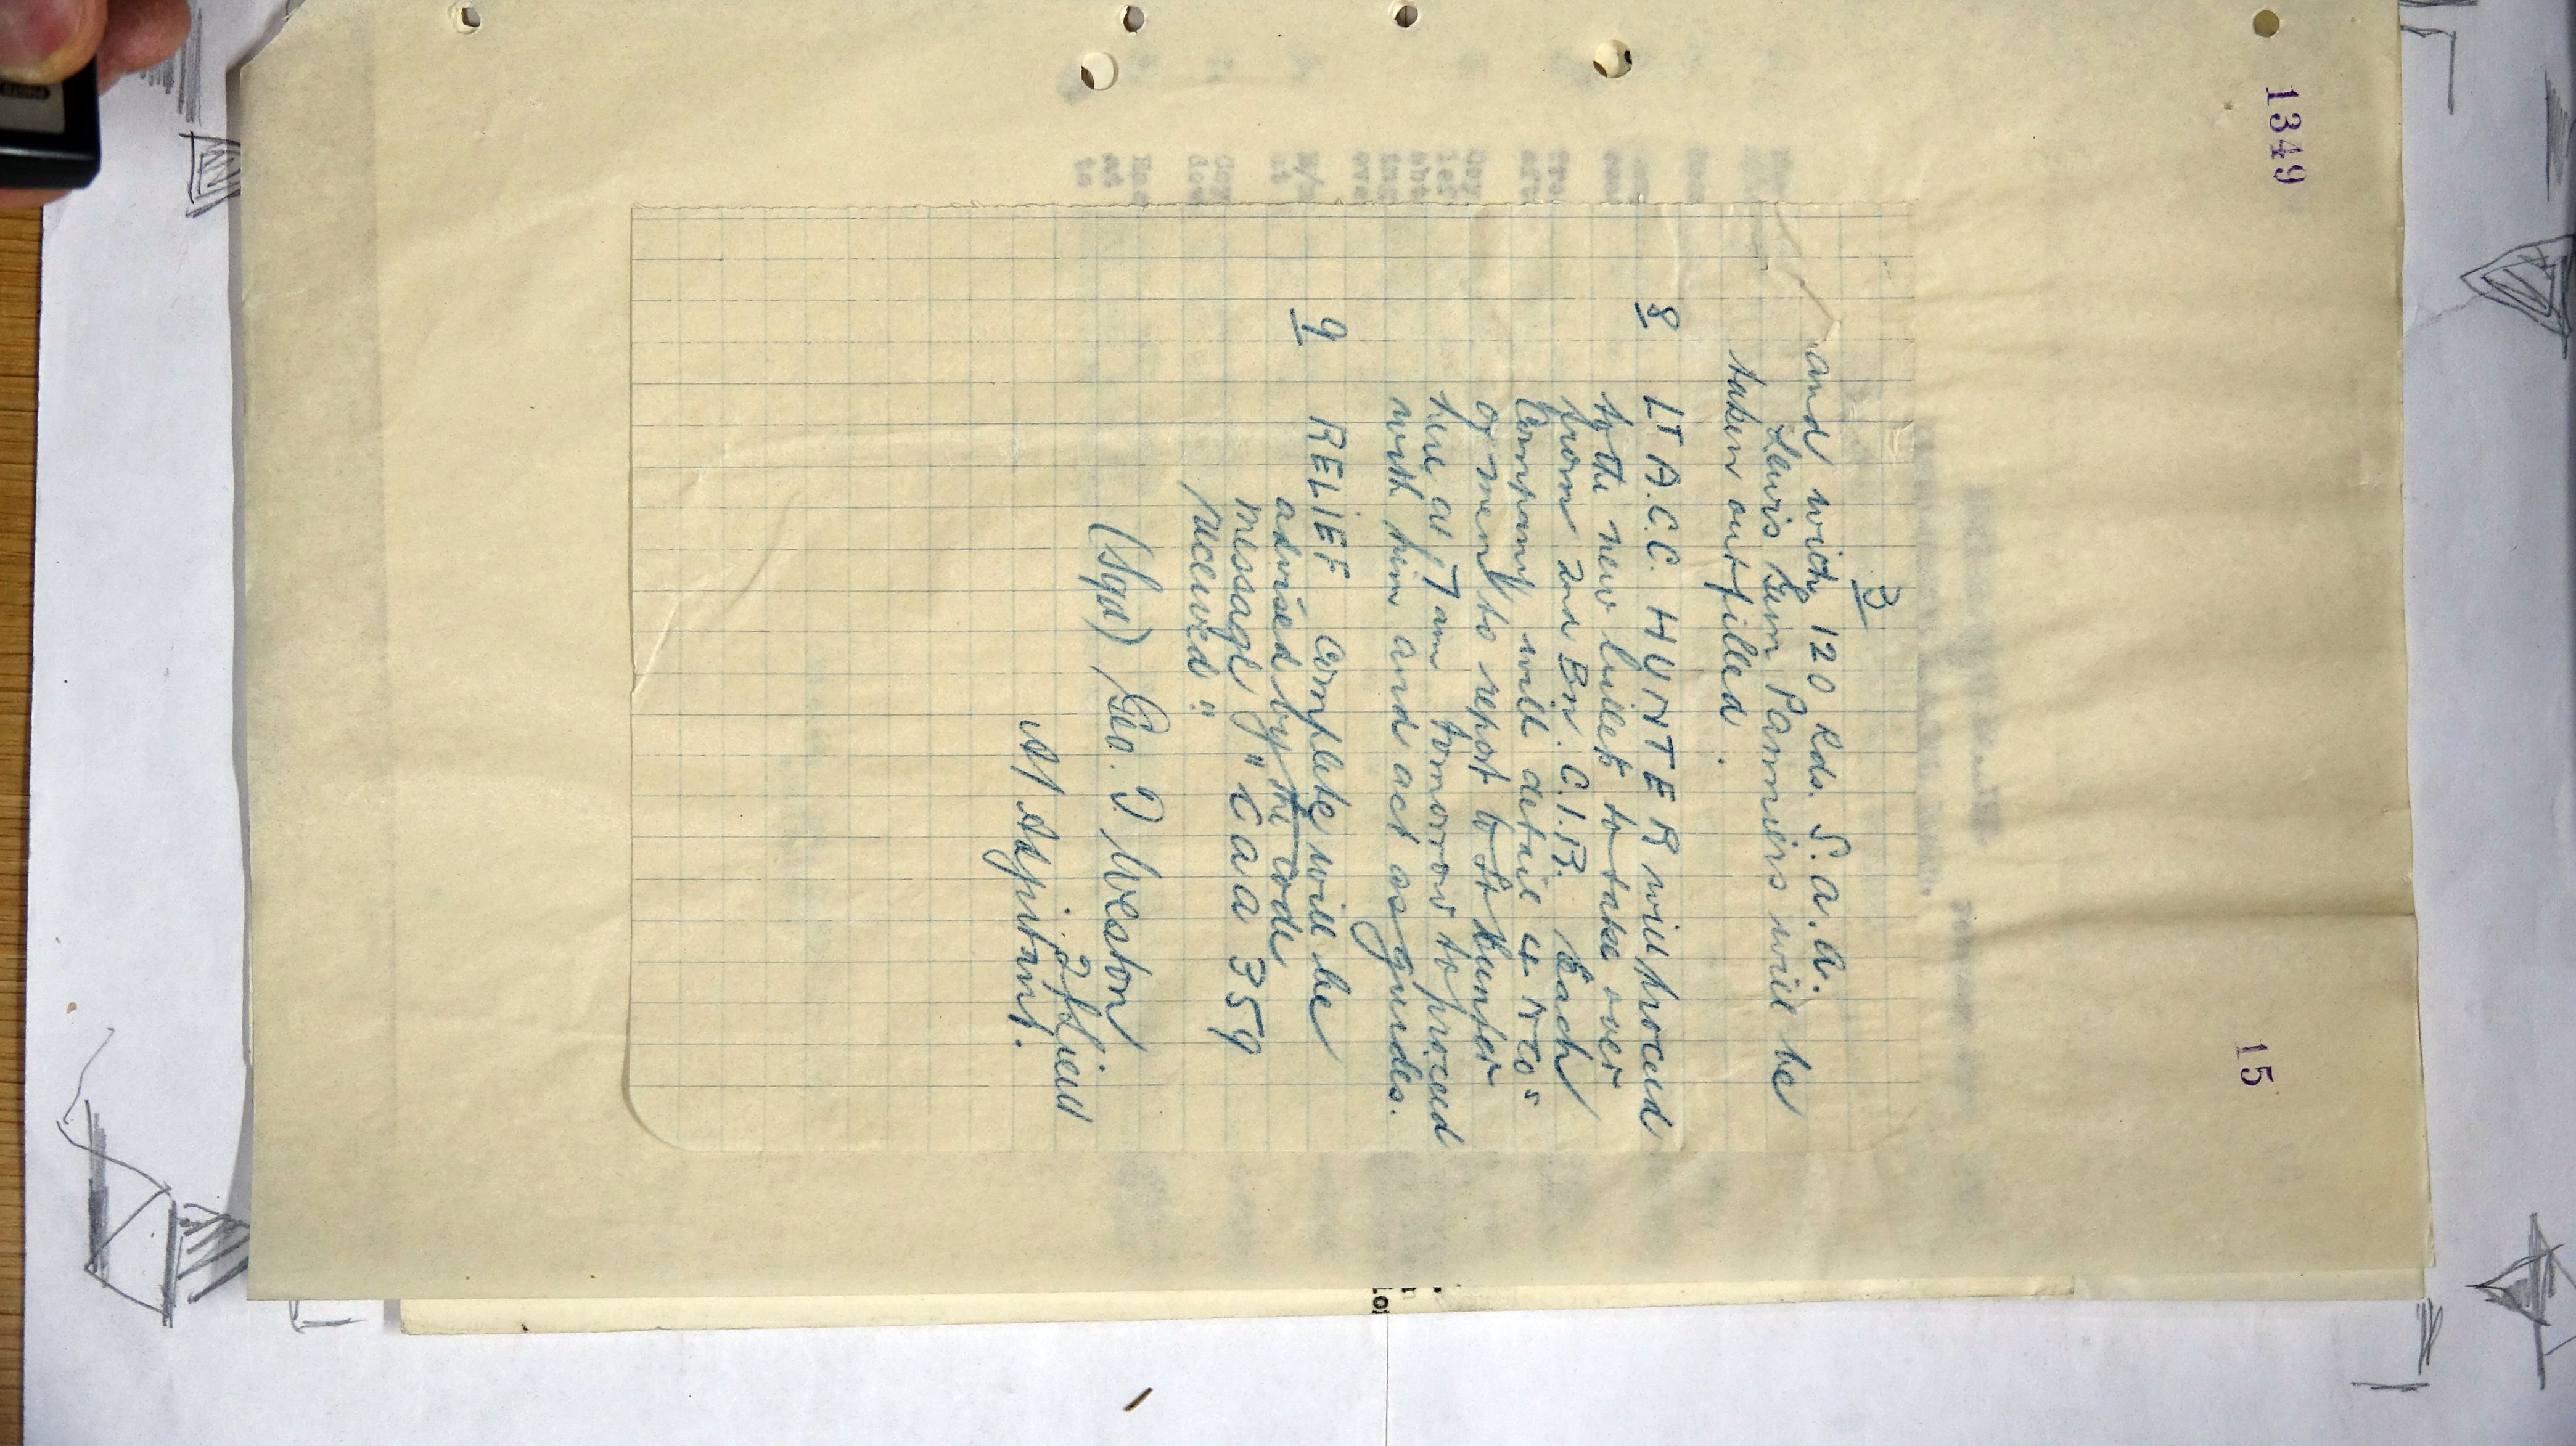 1349
15
3
and with 120 Rds. S.A.A.
Lewis Gun Panniers will be
taken out filled.
8 LT A.C.C. HUNTER will proceed
to the new billets to take over
from 2nd Bn. C.I.B. Each
Company will detail 4 NCOs
or men to report to Lt Hunter
here at 7 am tomorrow to proceed
with him and act as guides.
9 RELIEF complete will be
advised by the code
message "CAA 359
received"
(Sgd) Geo. D Weston
2/Lieut
A/Adjutant.